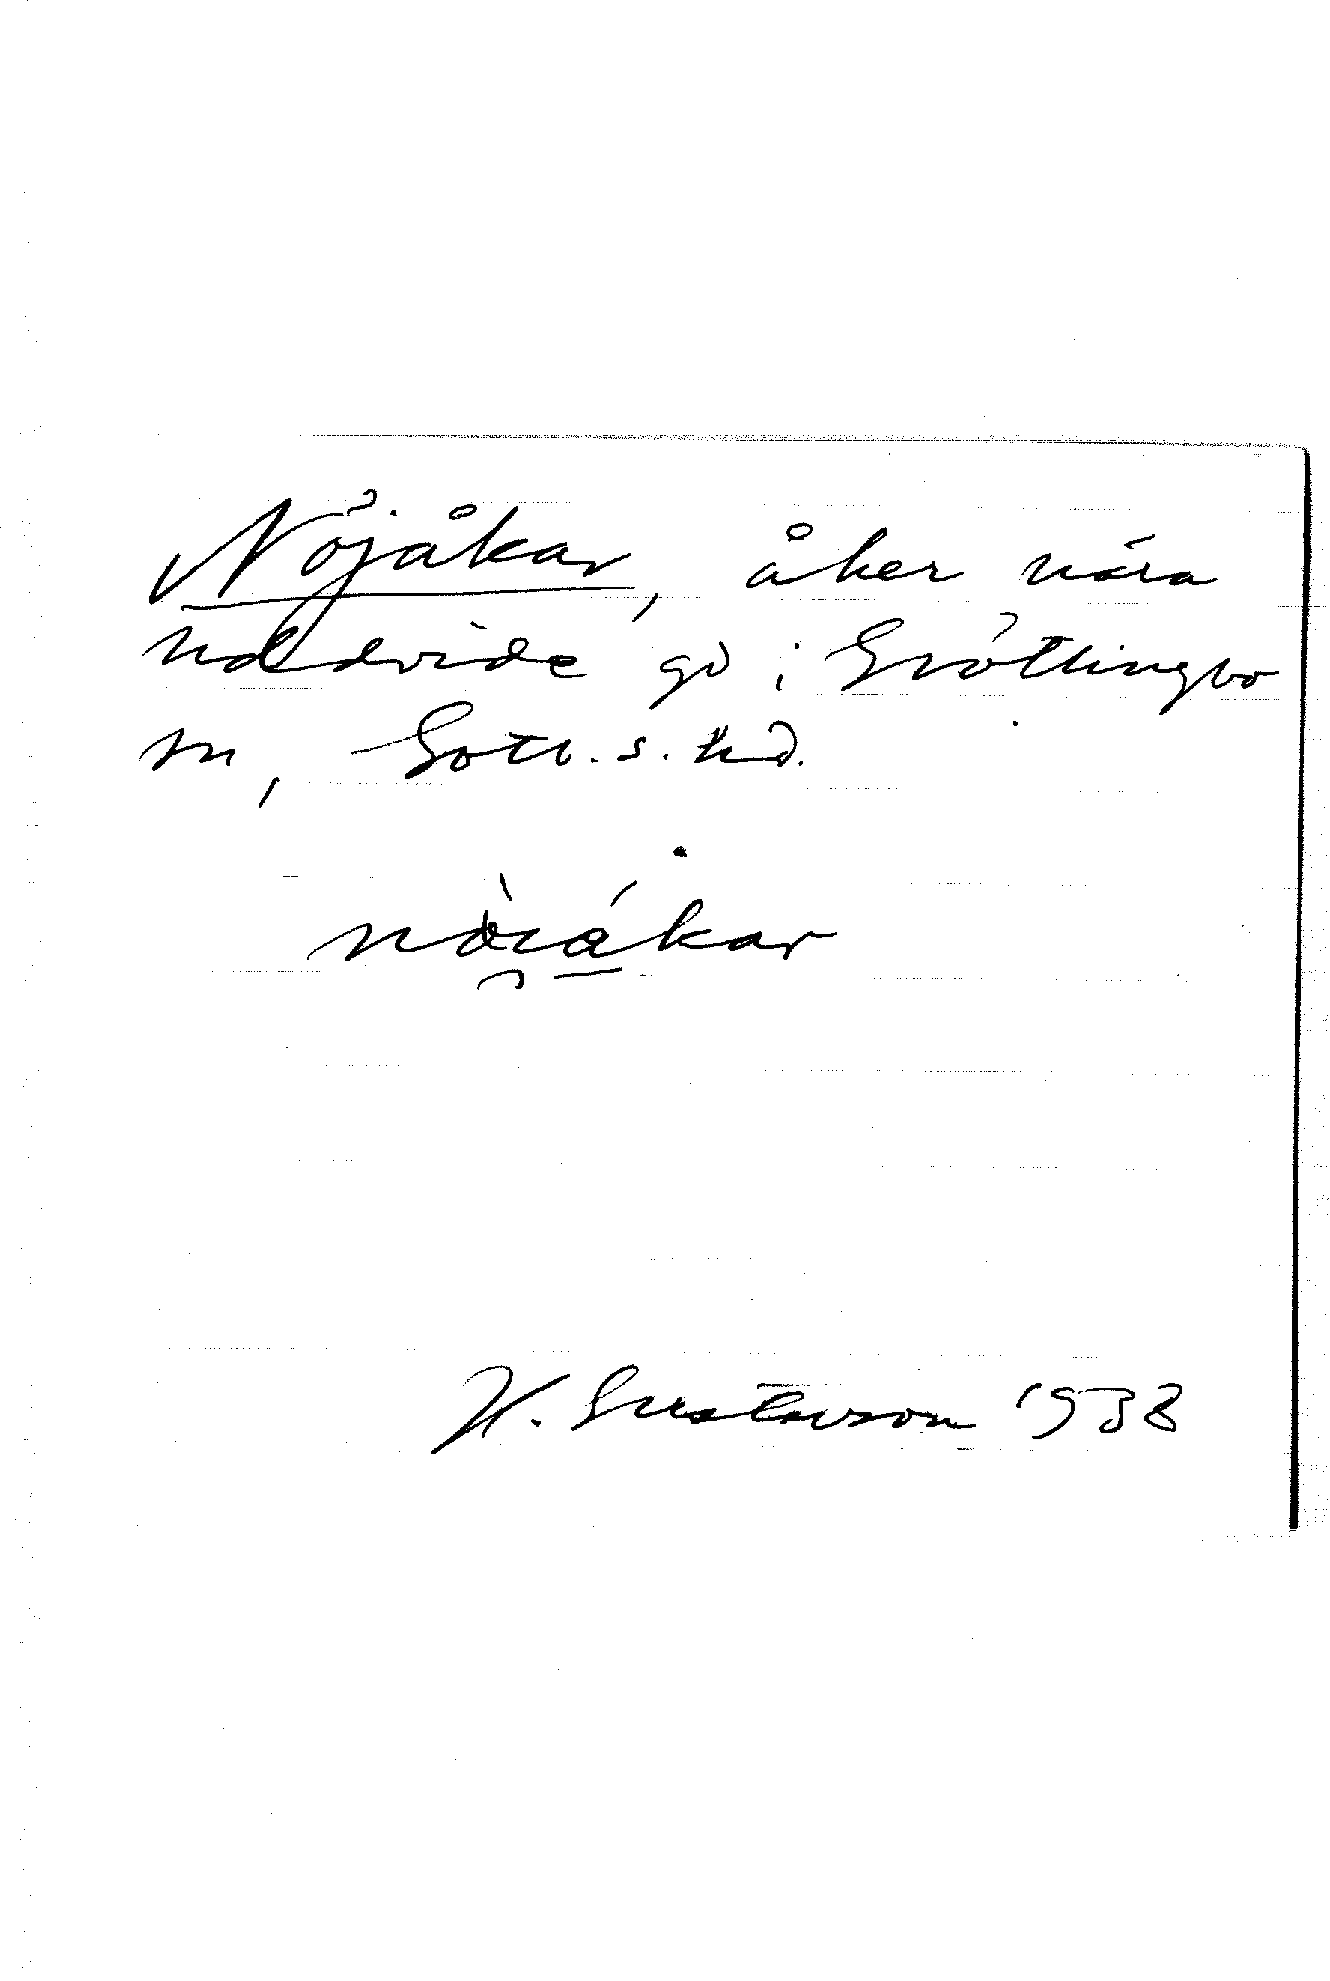 Nöjåkar, åker nära
Uddvide gd i Grötlingbo
sn, Gotl. s. hd.
nòiákar
H. Gustavson 1938